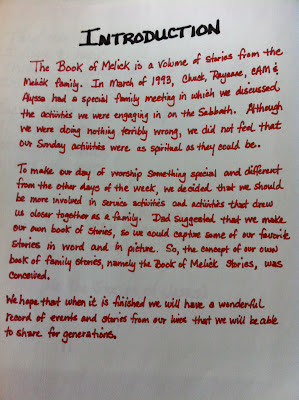 INTRODUCTION
The Book of Melick is a volume of stories from the
Melick family. In March of 1993, Chuck, Rayanne, CAM &
Alyssa had a special family meeting in which we discussed
the activities we were engaging in on the Sabbath. Although
we were doing nothing terribly wrong, we did not feel that
our Sunday activities were as spiritual as they could be.
To make our day of worship something special and different
from the other days of the week, we decided that we should
be more involved in service activities and activities that drew
us closer together as a family. Dad suggested that we make
our own book of stories, so we could capture some of our favorite
stories in word and in picture. So, the concept of our own
book of family stories, namely the Book of Melick Stories, was
conceived.
We hope that when it is finished we will have a wonderful
record of events and stories from our lives that we will be able
to share for generations.